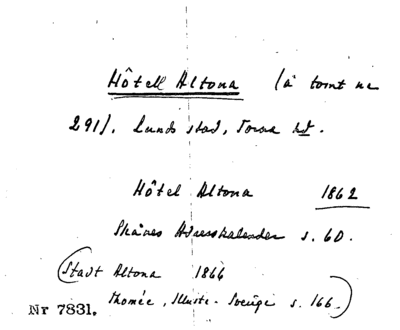 Hôtell Altona (å tomt nr
291). Lunds stad, Torna hd.
Hôtel Altona 1862
Skånes Adresskalender s. 60.
(Stadt Altona 1866
Thomée, Illustr. Sverige s. 166.)
Nr 7831.